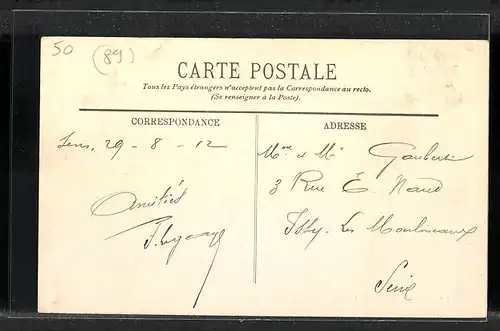 50
(89)
CARTE POSTALE
Tous les Pays étrangers n'acceptent pas la Correspondance au recto.
(Se renseigner à la Poste).
CORRESPONDANCE
ADRESSE
Sens, 29 - 8 - 12
Amitiés
Mme et Mr
3 Rue E. Naud
Issy-les Moulineaux
Seine